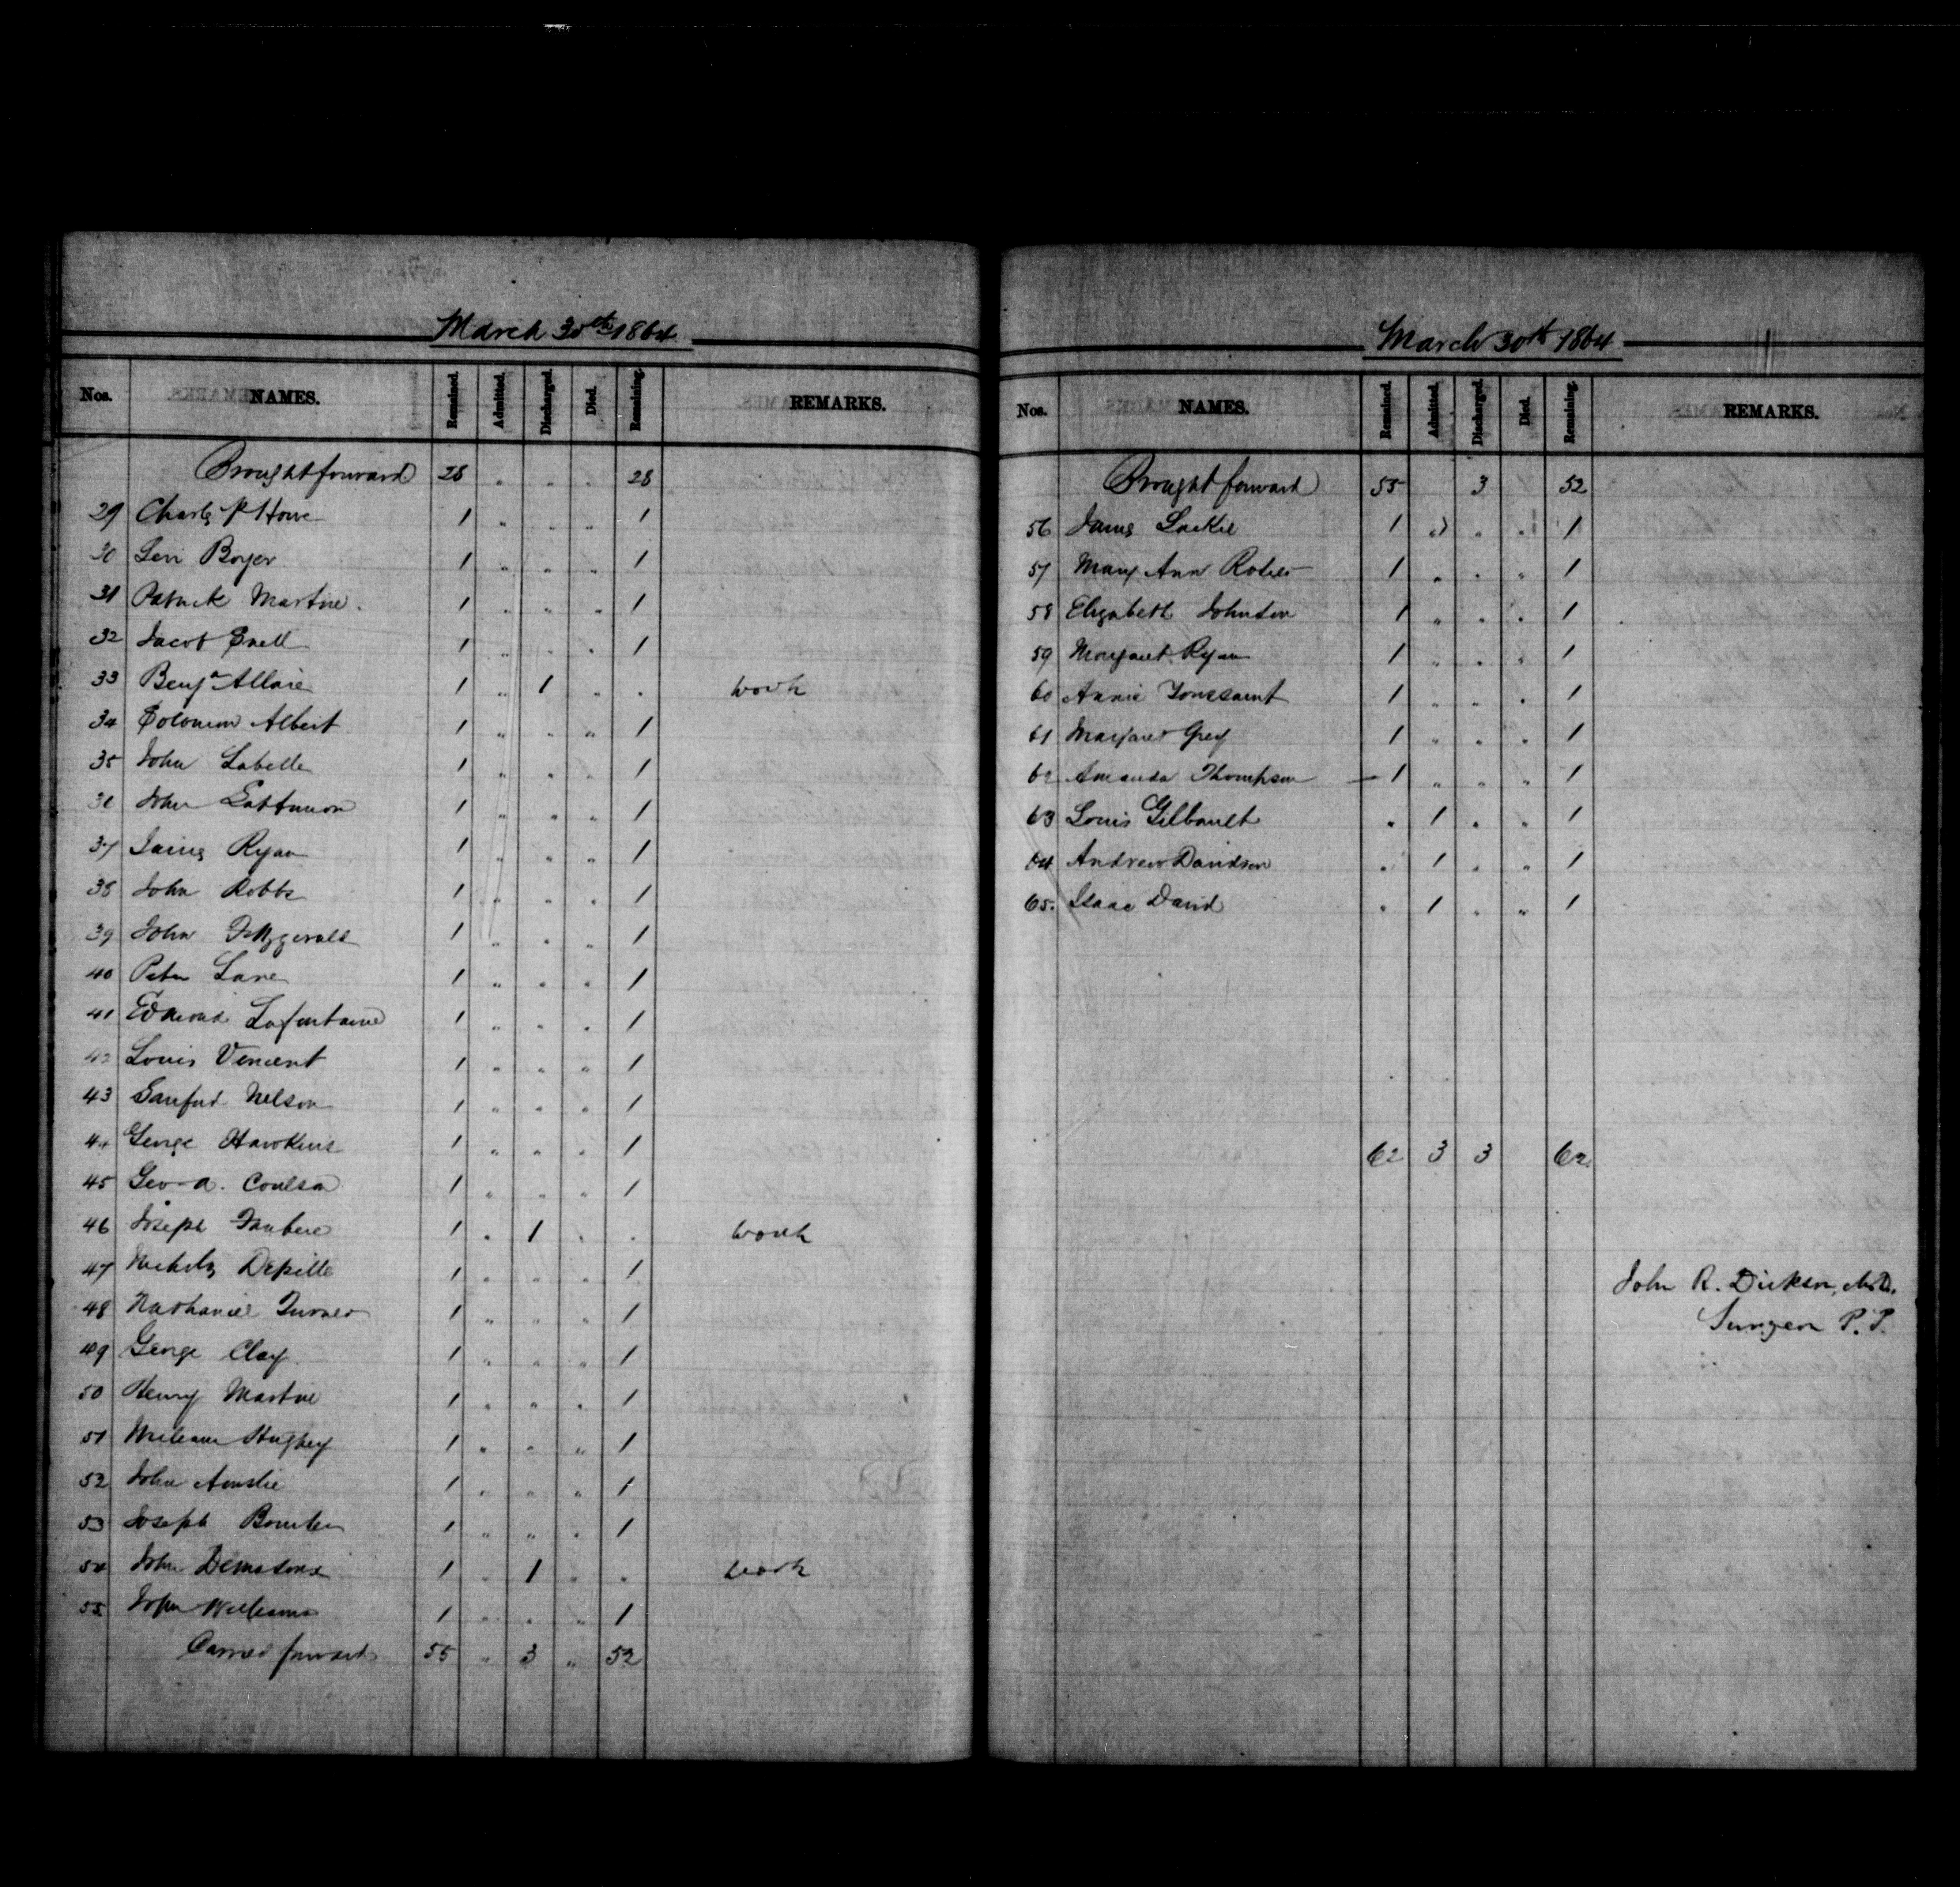 March 30th 1864
Nos. NAMES. Remained. Admitted. Discharged. Died. Remaining. REMARKS.
Brought forward 28 " " " 28
29 Charles P Howe 1 " " " 1
30 Levi Boyer 1 " " " 1
31 Patrick Martin 1 " " " 1
32 Jacob Snell 1 " " " 1
33 Benjn Allaire 1 " 1 " " work
34 Solomon Albert 1 " " " 1
35 John Labelle 1 " " " 1
36 John 1 " " " 1
37 James Ryan 1 " " " 1
38 John Robbs 1 " " " 1
39 John Fitzgerald 1 " " " 1
40 Peter Lane 1 " " " 1
41 Edmond Lafontaine 1 " " " 1
42 Louis Vincent 1 " " " 1
43 Sanford Nelson 1 " " " 1
44 George Hawkins 1 " " " 1
45 Geo A. Coulson 1 " " " 1
46 Joseph 1 " 1 " " work
47 Nicholas Depille 1 " " " 1
48 Nathaniel Turner 1 " " " 1
49 George Clay 1 " " " 1
50 Henry Martin 1 " " " 1
51 William Hughey 1 " " " 1
52 John Ainslie 1 " " " 1
53 Joseph 1 " " " 1
54 John 1 " 1 " " work
55 John Williams 1 " " " 1
Carried forward 55 " 3 " 52
March 30th 1864
Nos. NAMES. Remained. Admitted. Discharged. Died. Remaining. REMARKS.
Brought forward 55 3 52
56 James Lackie 1 " " " 1
57 Mary Ann 1 " " " 1
58 Elizabeth Johnston 1 " " " 1
59 Margaret Ryan 1 " " " 1
60 Annie Toussaint 1 " " " 1
61 Margaret Grey 1 " " " 1
62 Amanda Thompson 1 " " " 1
63 Louis Gilbault " 1 " " 1
64 Andrew Davidson " 1 " " 1
65. Isaac David " 1 " " 1
62 3 3 62
John R. Dickson, M.D.
Surgeon P.P.